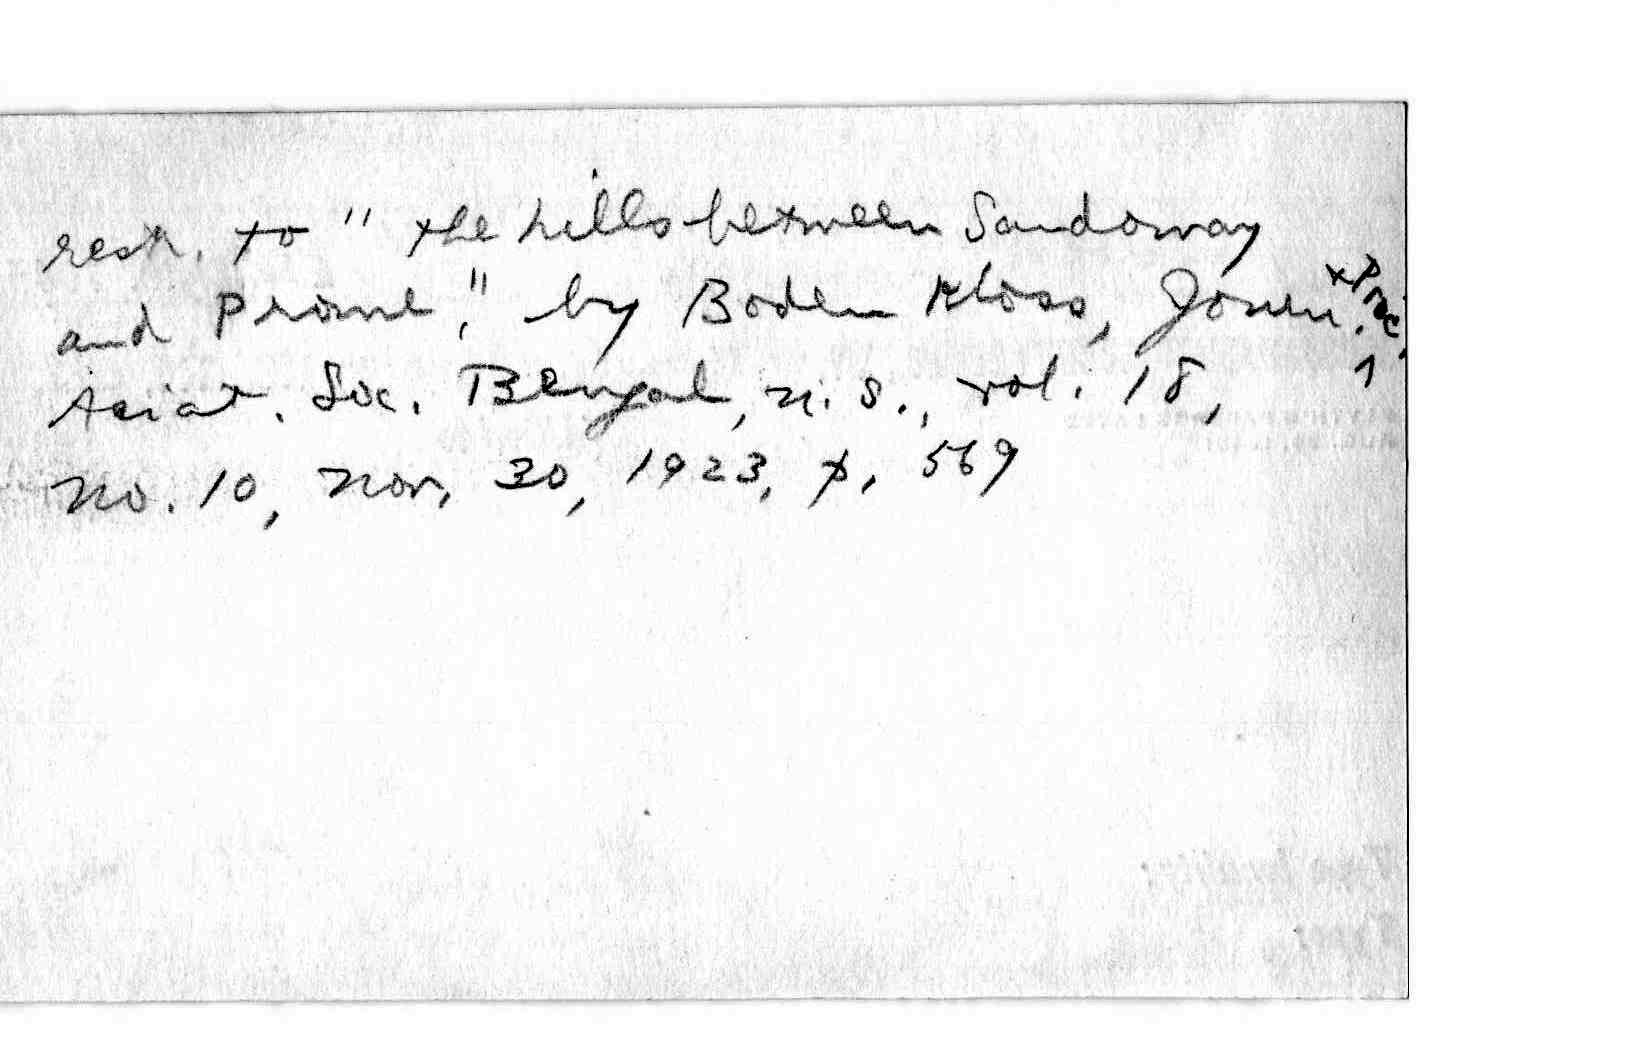 restr. to "the hills between Sandoway
and Prome," by Boden Kloss, Journ. + Proc.
Asiat. Soc. Bengal, n.s., vol. 18,
no. 10, Nov. 30, 1923, p. 569